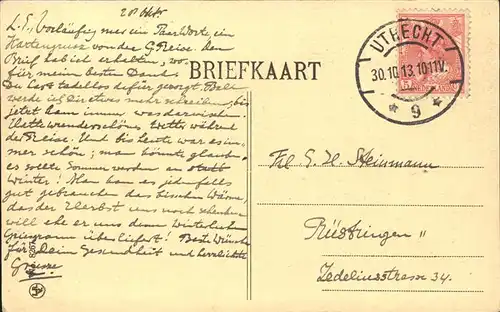 28 Okt.
L. E., Vorläufig nur ein Paar Worte, ein
Kartengruss von der G. Reise. Den
Brief hab ich erhalten, wo-
für mein besten Dank.
Du hast tadellos dafür gesorgt. Bald
werde ich Dir etwas mehr schreiben, bis
jetzt kam immer was dazwischen.
Hatte wunderschönes Wetter während
der Reise. Und bis heute war es im-
mer schön; man könnte glauben
es sollte Sommer werden an statt
Winter! Man kann es jedenfalls
gut gebrauchen das bischen Wärme,
das der Herbst uns noch schenken
will ehe er uns dem Winterlichen
überliefert! Beste Wünsche
für Dein Gesundheit und herzlichste
Grüsse
BRIEFKAART
UTRECHT
30.10.13.10-11V.
* 9 *
5
Frl. G. H. Steinmann
Rüstringen "
Zedeliusstrasse 34.